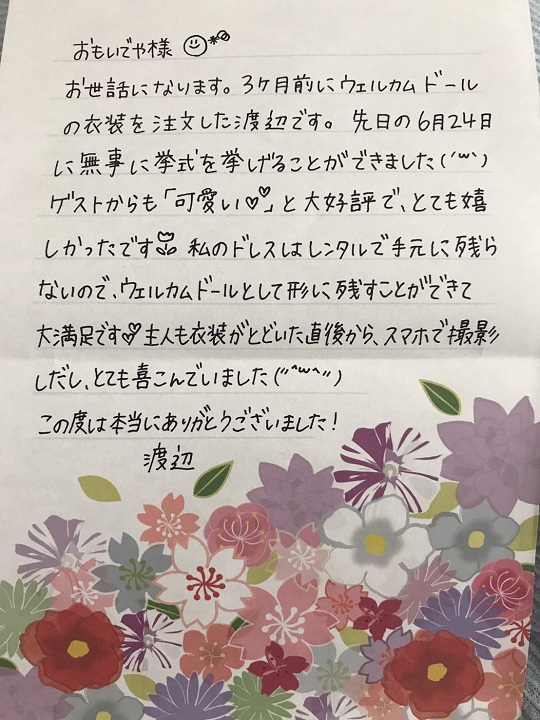 おもいでや様
お世話になります。3ヶ月前にウェルカムドール
の衣装を注文した渡辺です。先日の6月24日
に無事に挙式を挙げることができました(´ω`)
ゲストからも「可愛い♡♡」と大好評で、とても嬉
しかったです🌷私のドレスはレンタルで手元に残ら
ないので、ウェルカムドールとして形に残すことができて
大満足です♡主人も衣装がとどいた直後から、スマホで撮影
しだし、とても喜こんでいました(〃^ω^〃)
この度は本当にありがとうございました!
渡辺